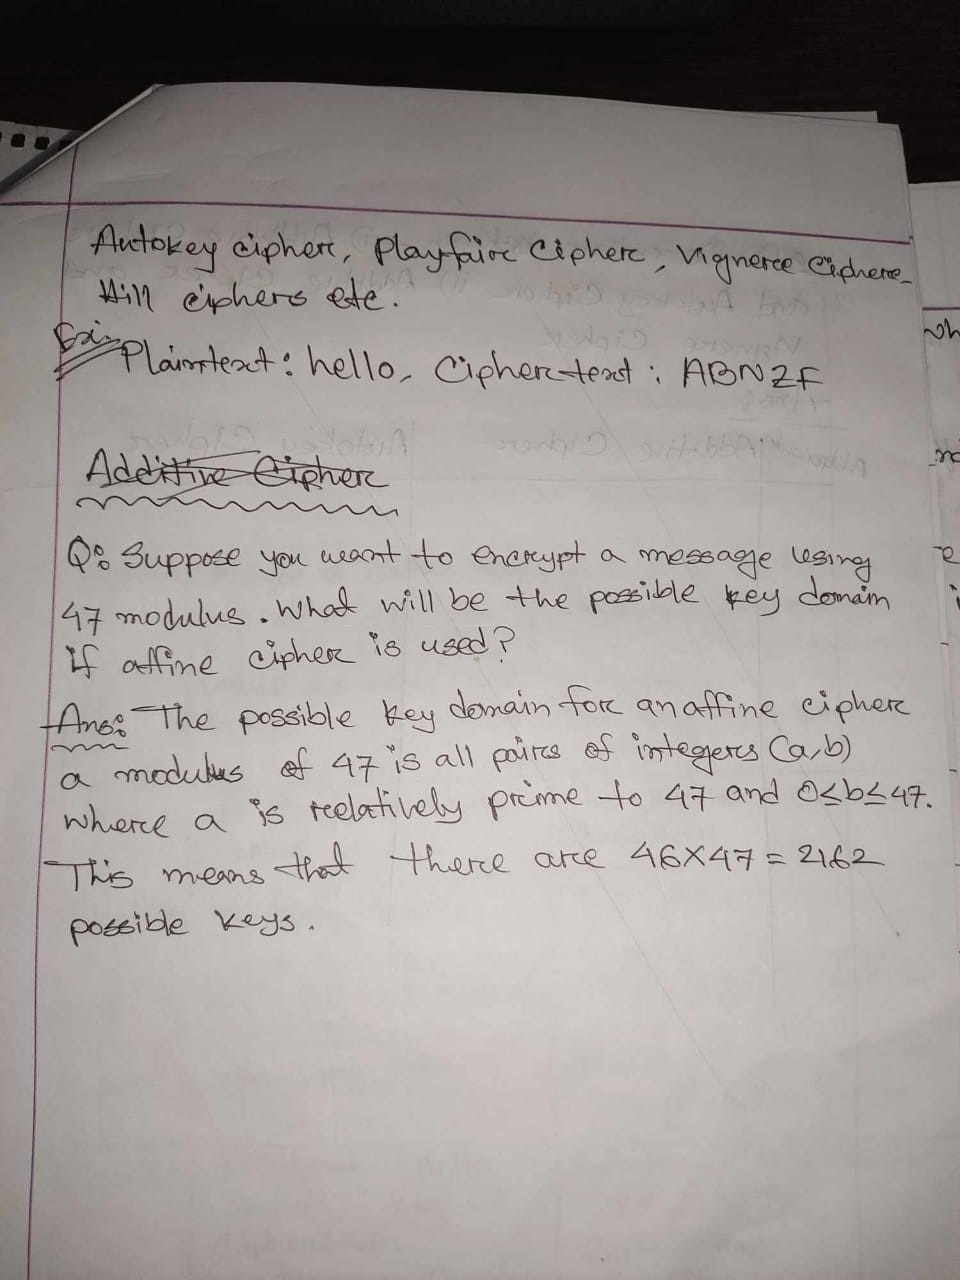 Autokey cipher, Playfair Cipher, Vignere Cipher
Hill ciphers etc.
Ex:
Plaintext: hello, Ciphertext: ABNZF
Additive Cipher
Q: Suppose you want to encrypt a message using
47 modulus. What will be the possible key domain
if affine cipher is used?
Ans: The possible key domain for an affine cipher
a modulus of 47 is all pairs of integers (a,b)
where a is relatively prime to 47 and 0≤b≤47.
This means that there are 46×47=2162
possible keys.